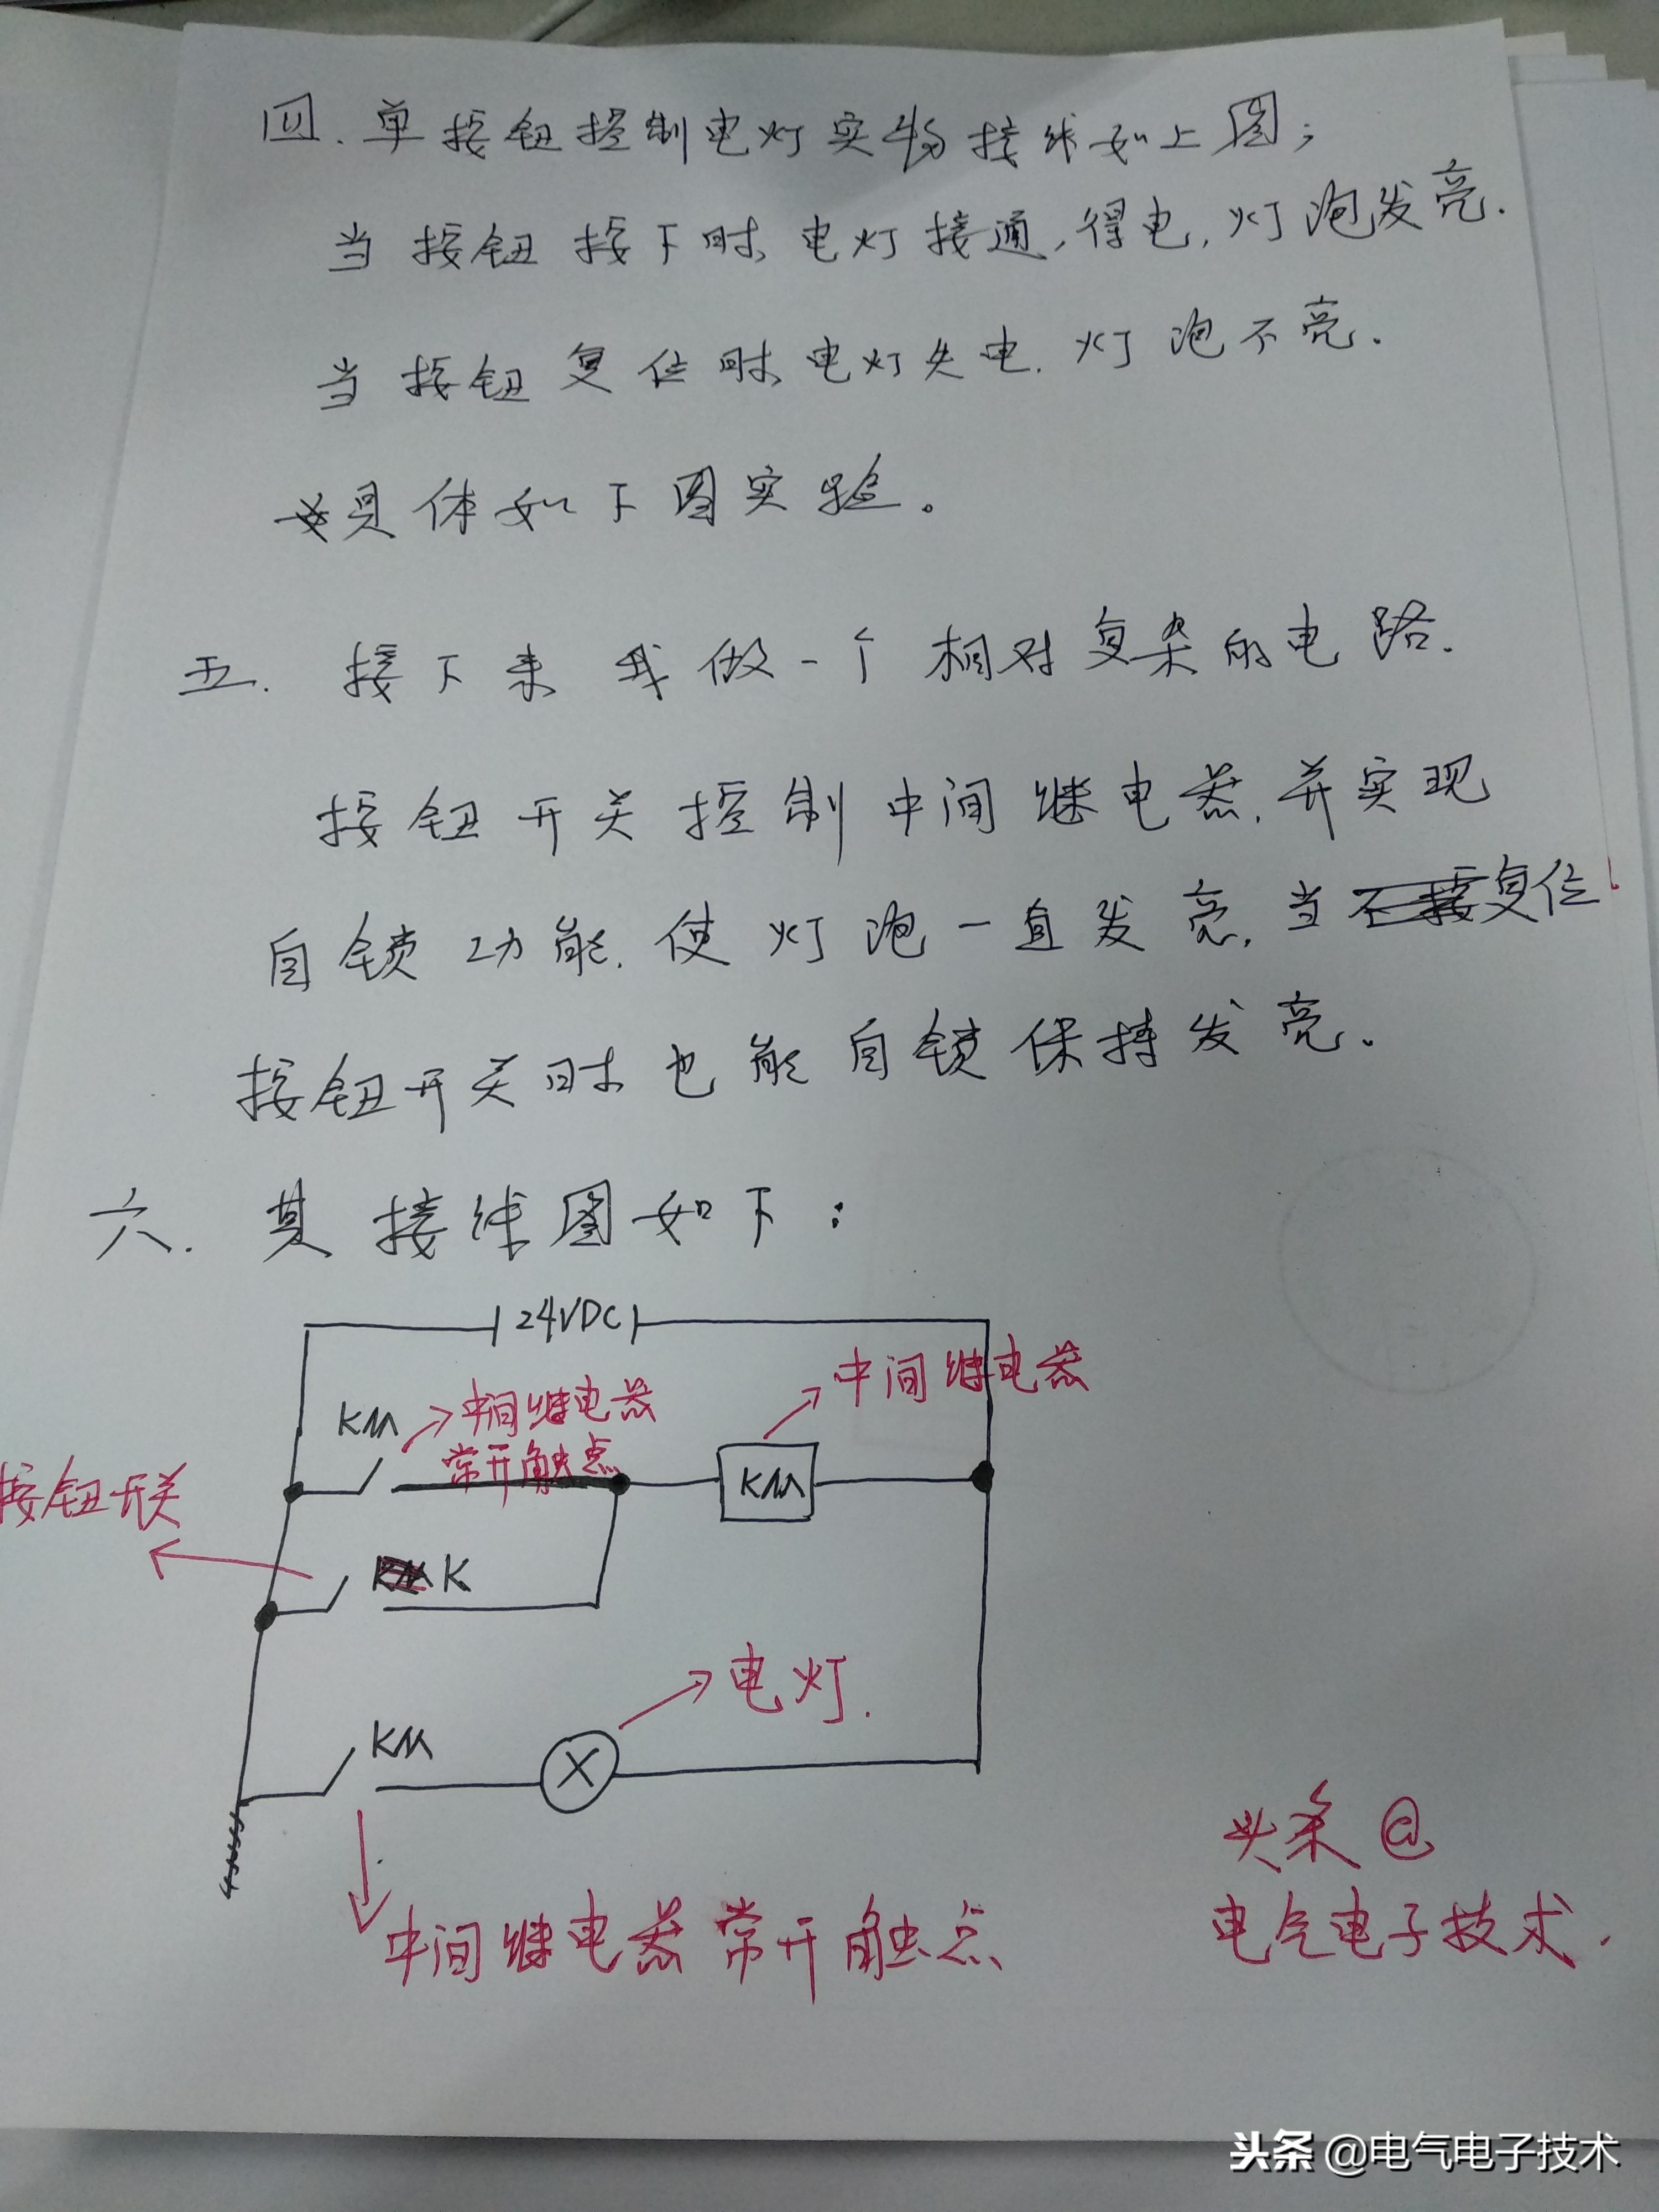 四.单按钮控制电灯实物接线如上图;
当按钮按下时电灯接通,得电,灯泡发亮.
当按钮复位时电灯失电.灯泡不亮.
具体如下图实验。
五.接下来我做一个相对复杂的电路.
按钮开关控制中间继电器.并实现
自锁功能.使灯泡一直发亮.当复位
按钮开关时也能自锁保持发亮.
六.其接线图如下:
24VDC
中间继电器
KM
中间继电器
常开触点
KM
按钮开关
K
电灯.
KM
头条@
电气电子技术.
中间继电器常开触点
头条 @电气电子技术